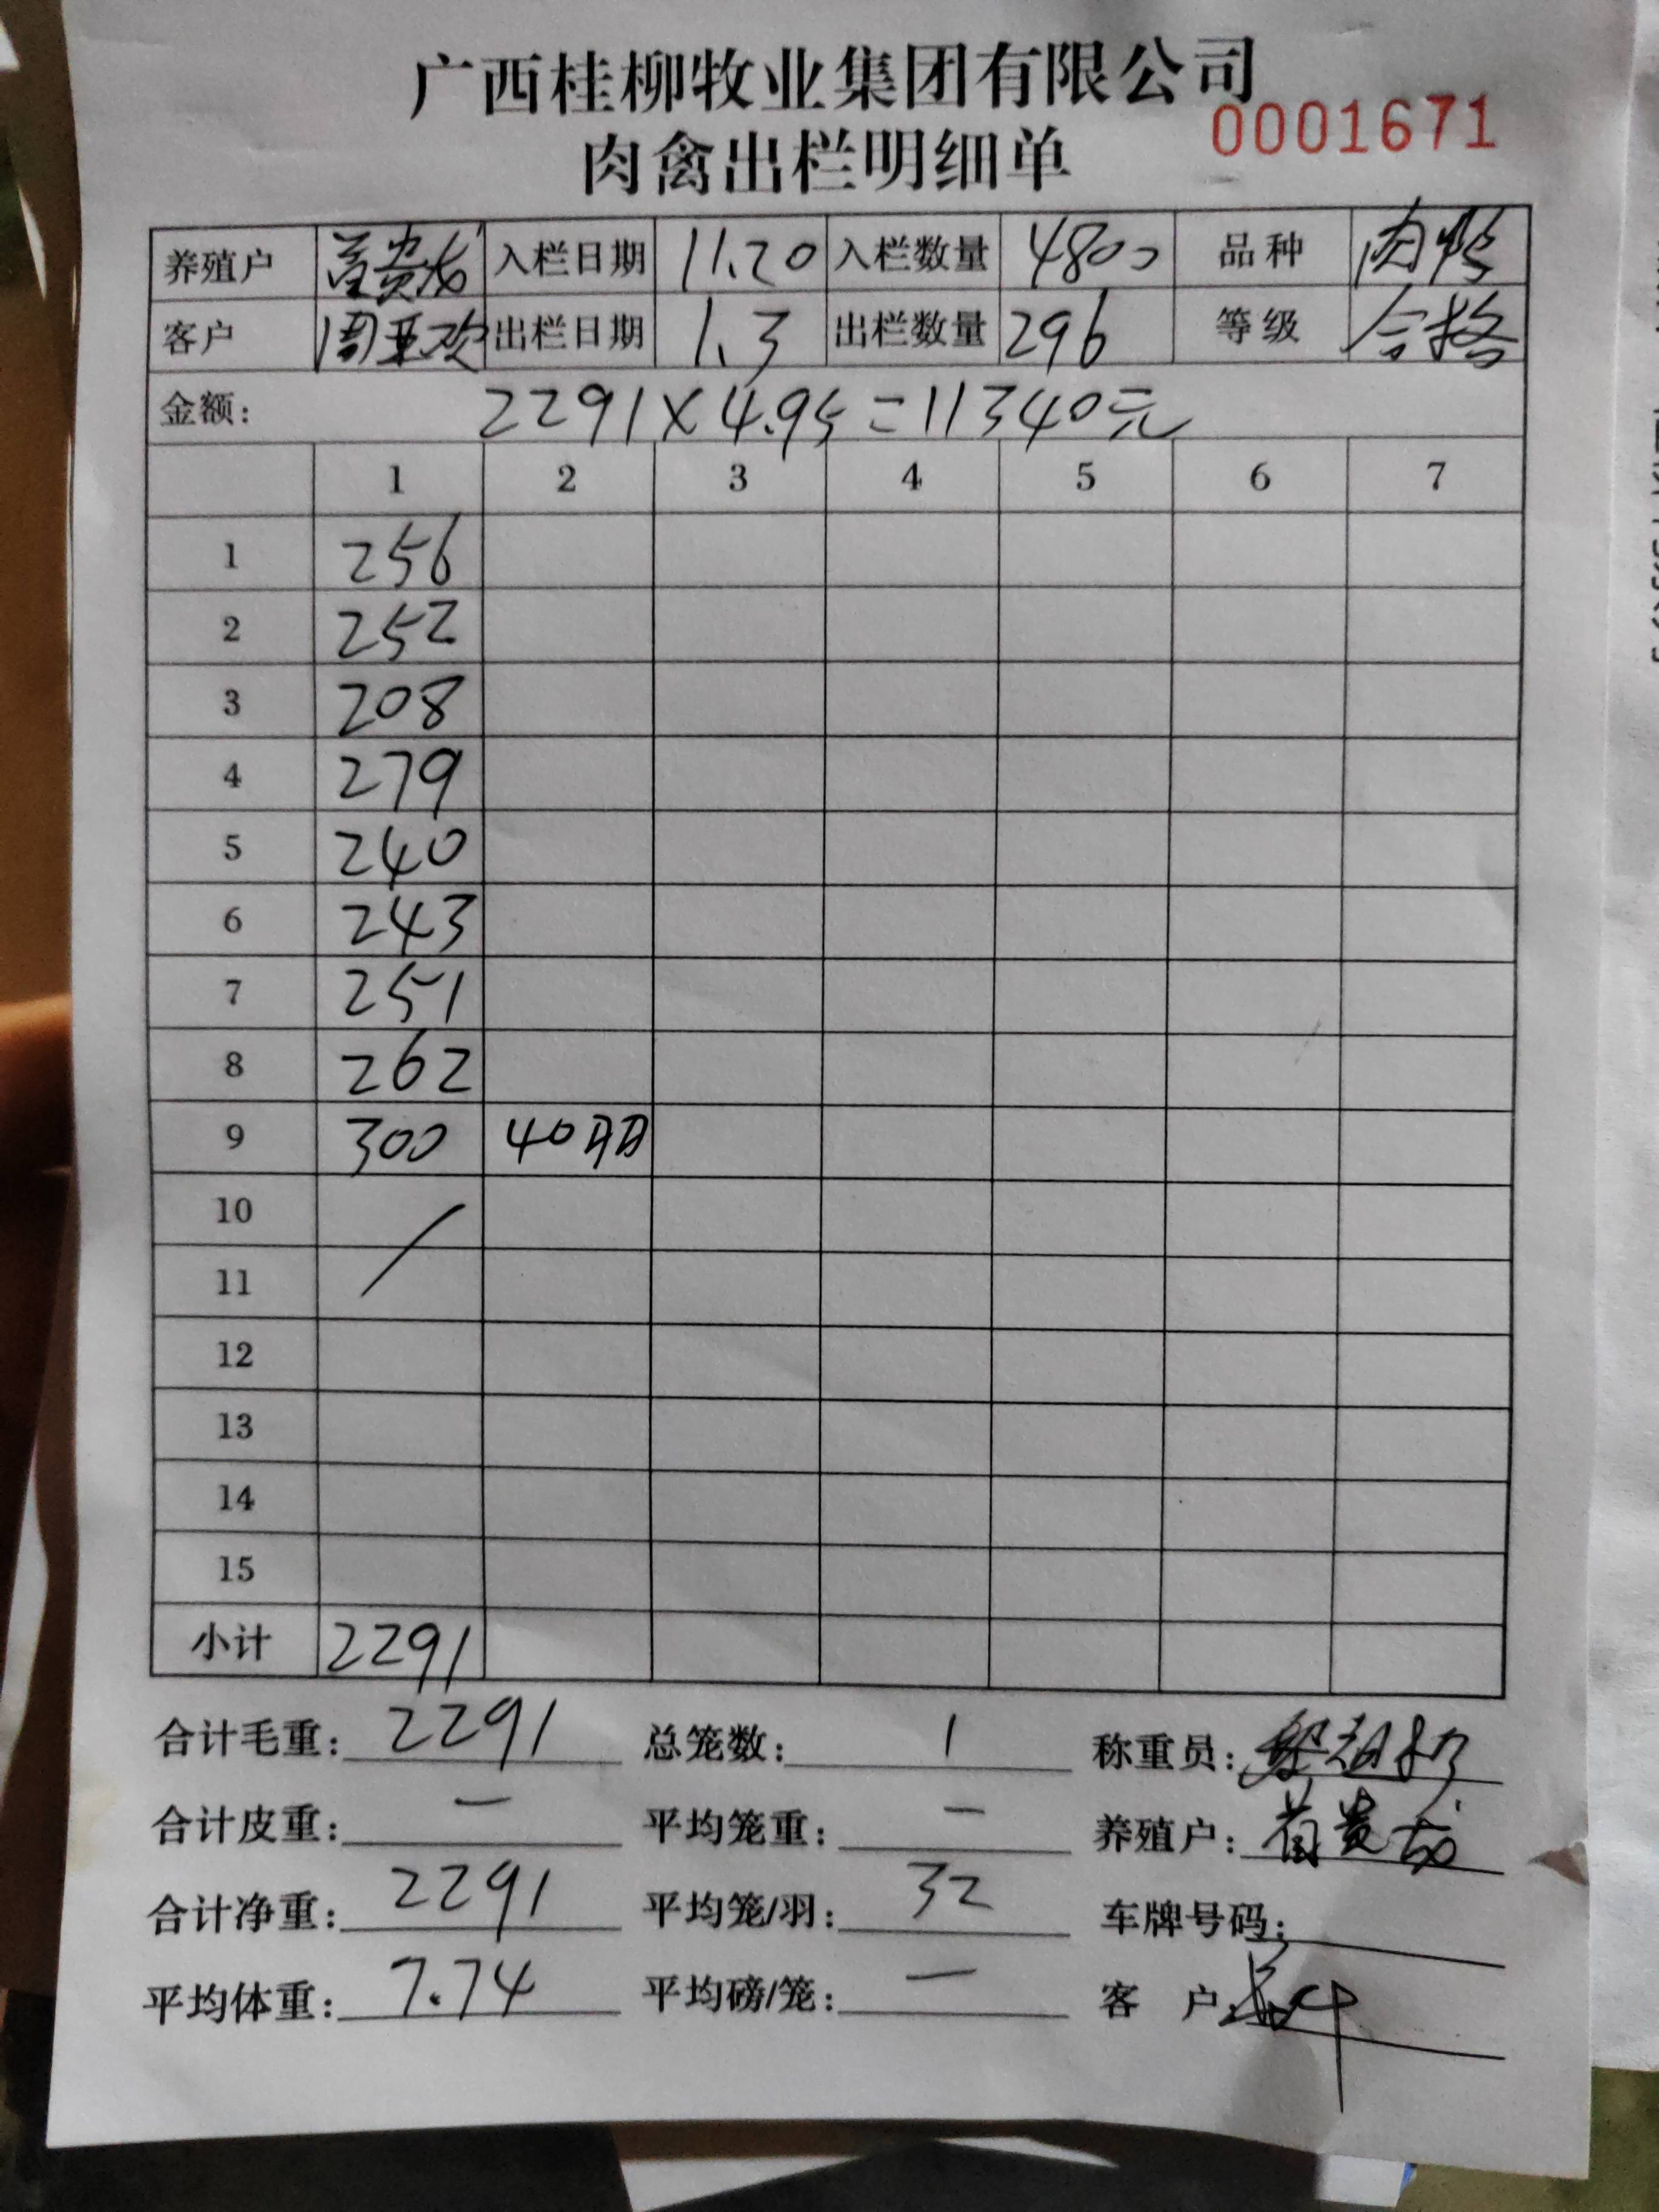 广西桂柳牧业集团有限公司
0001671
肉禽出栏明细单
养殖户 入栏日期 11.20 入栏数量 4800 品种 肉鸭
客户 周亚欢 出栏日期 1.3 出栏数量 296 等级 合格
金额: 2291×4.95=11340元
1 2 3 4 5 6 7
1 256
2 252
3 208
4 279
5 240
6 243
7 251
8 262
9 300 40
10
11
12
13
14
15
小计 2291
合计毛重: 2291 总笼数: 1 称重员:
合计皮重: — 平均笼重: — 养殖户: 贵龙
合计净重: 2291 平均笼/羽: 32 车牌号码:
平均体重: 7.74 平均磅/笼: — 客 户: